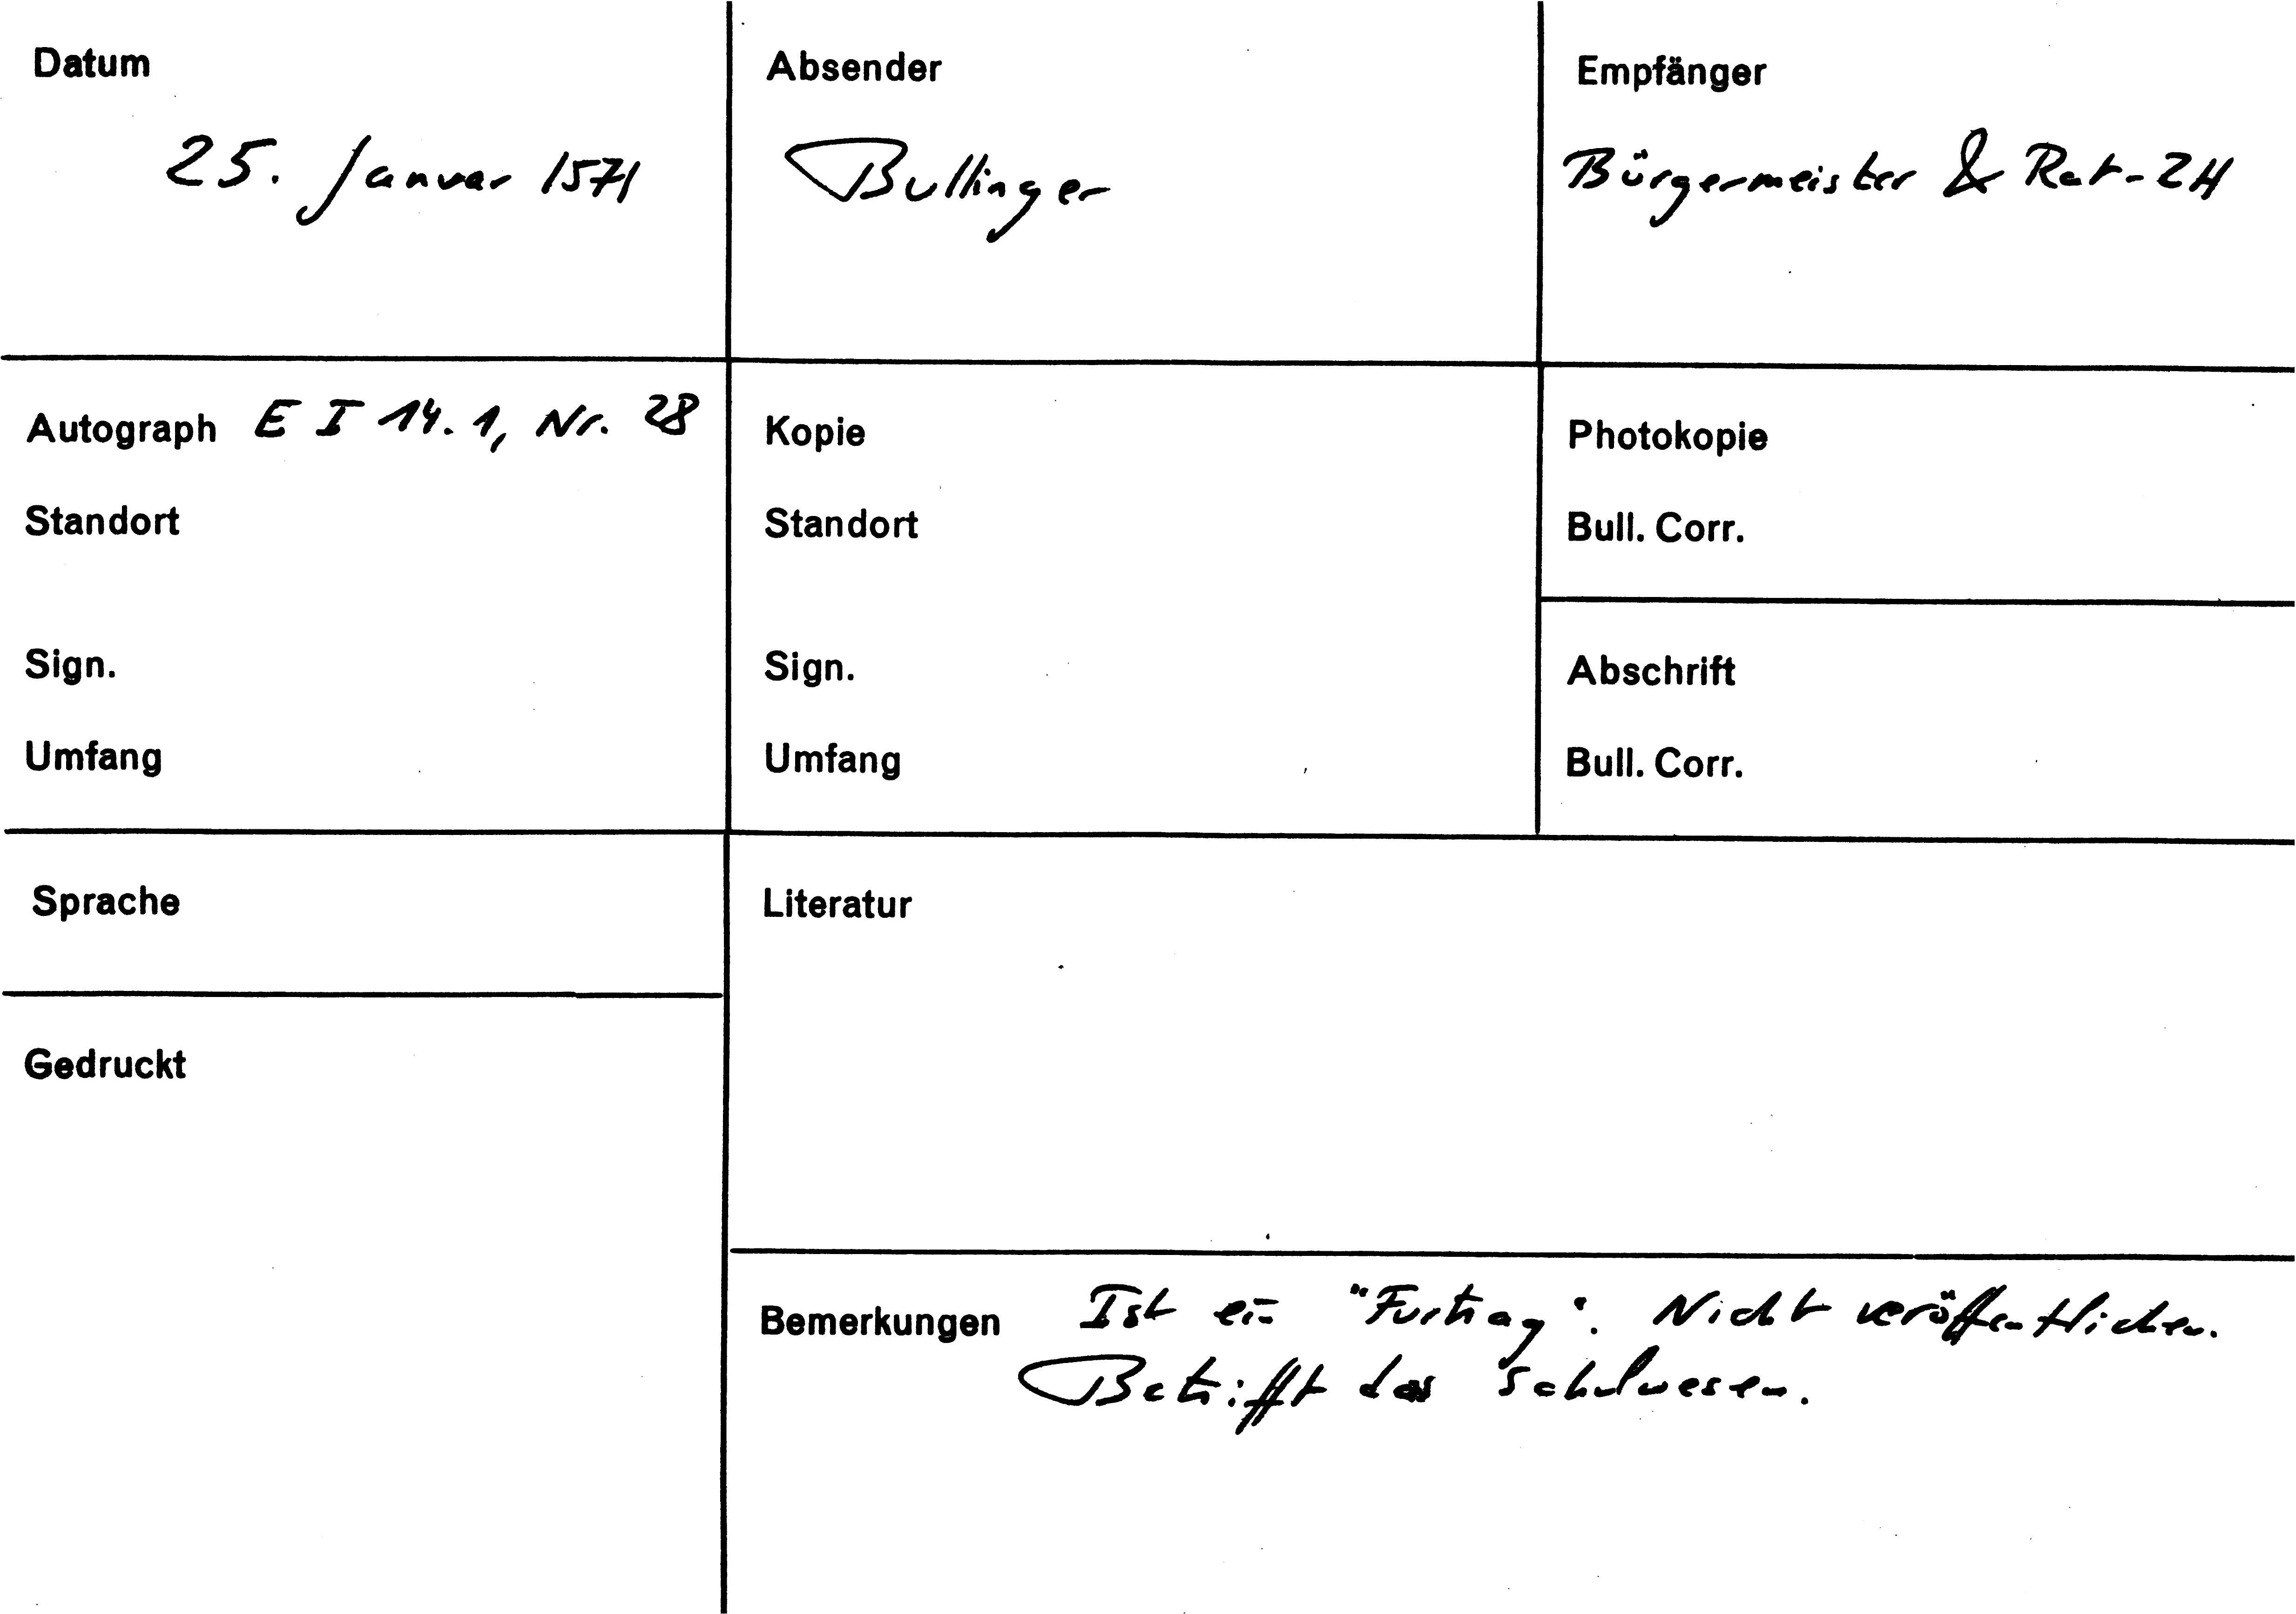 Datum
25. Januar 1571
Absender
Bullinger
Empfänger
Bürgermeister & Rat-ZH
Autograph E I 14.1, Nr. 28
Standort
Sign.
Umfang
Kopie
Standort
Sign.
Umfang
Photokopie
Bull. Corr.
Abschrift
Bull. Corr.
Sprache
Gedruckt
Literatur
Bemerkungen Ist ein "Furtrag". Nicht veröffentlichen.
Betrifft das Schulwesen.